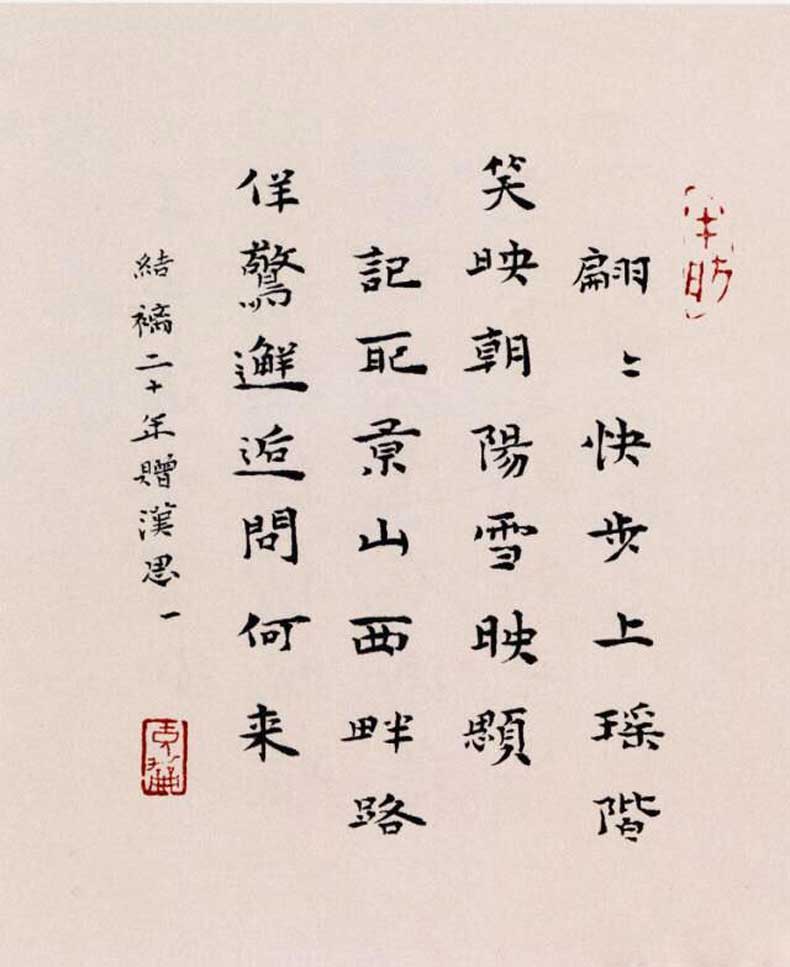 翩〻快步上瑤階
笑映朝陽雪映顋
記取景山西畔路
佯驚邂逅問何来
結褵二十年贈漢思 一